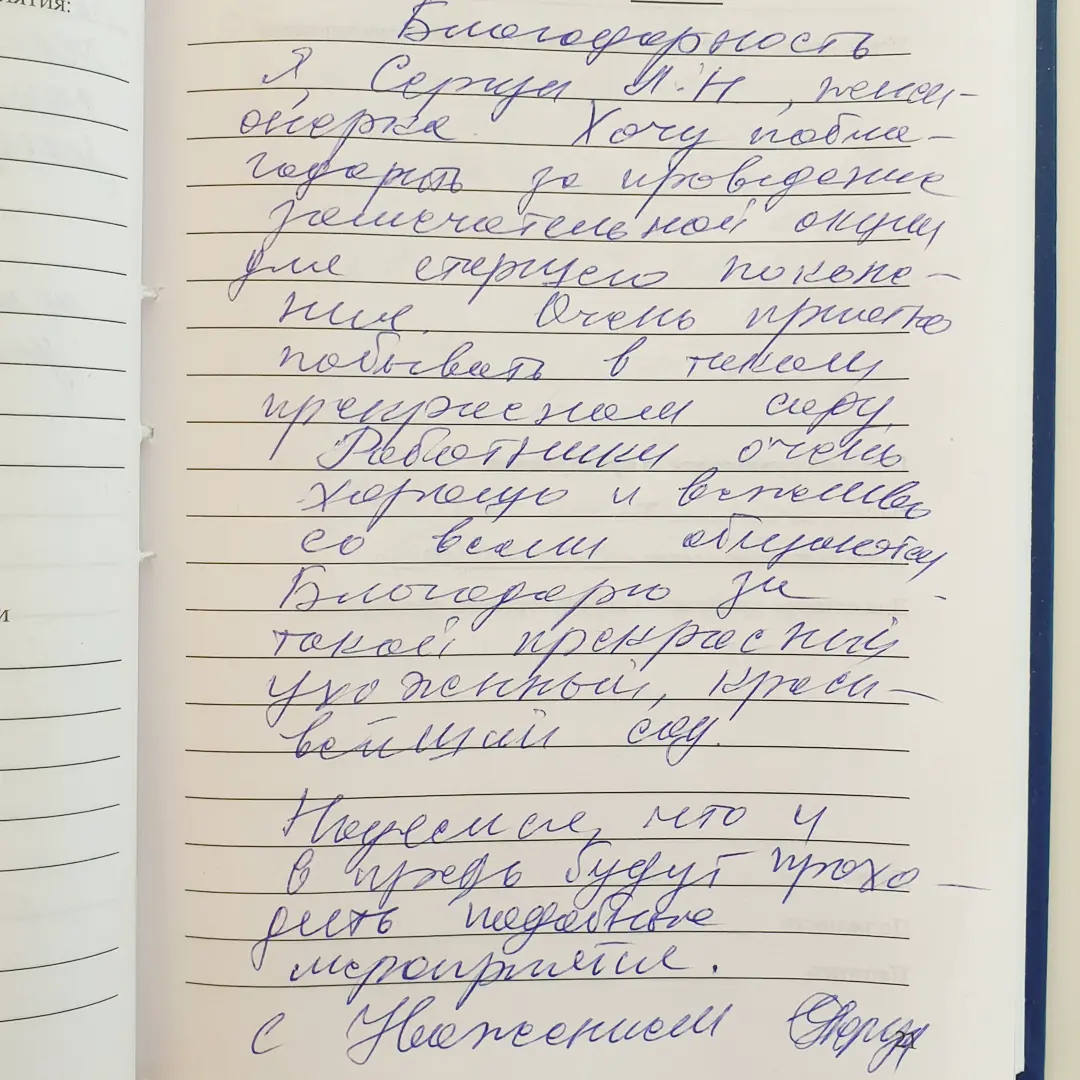 ятия:
Благодарность
Я, Л.Н, пенси-
онерка. Хочу побла-
годарить за проведение
замечательной акции
для старшего поколе-
ния. Очень приятно
побывать в таком
прекрасном саду.
Работники очень
хорошо и вежливо
со всеми общаются
Благодарю за
такой прекрасный
ухоженный, краси-
вейший сад.
Надеемся, что и
в предь будут прохо-
дить подобные
мероприятия.
с Уважением
и